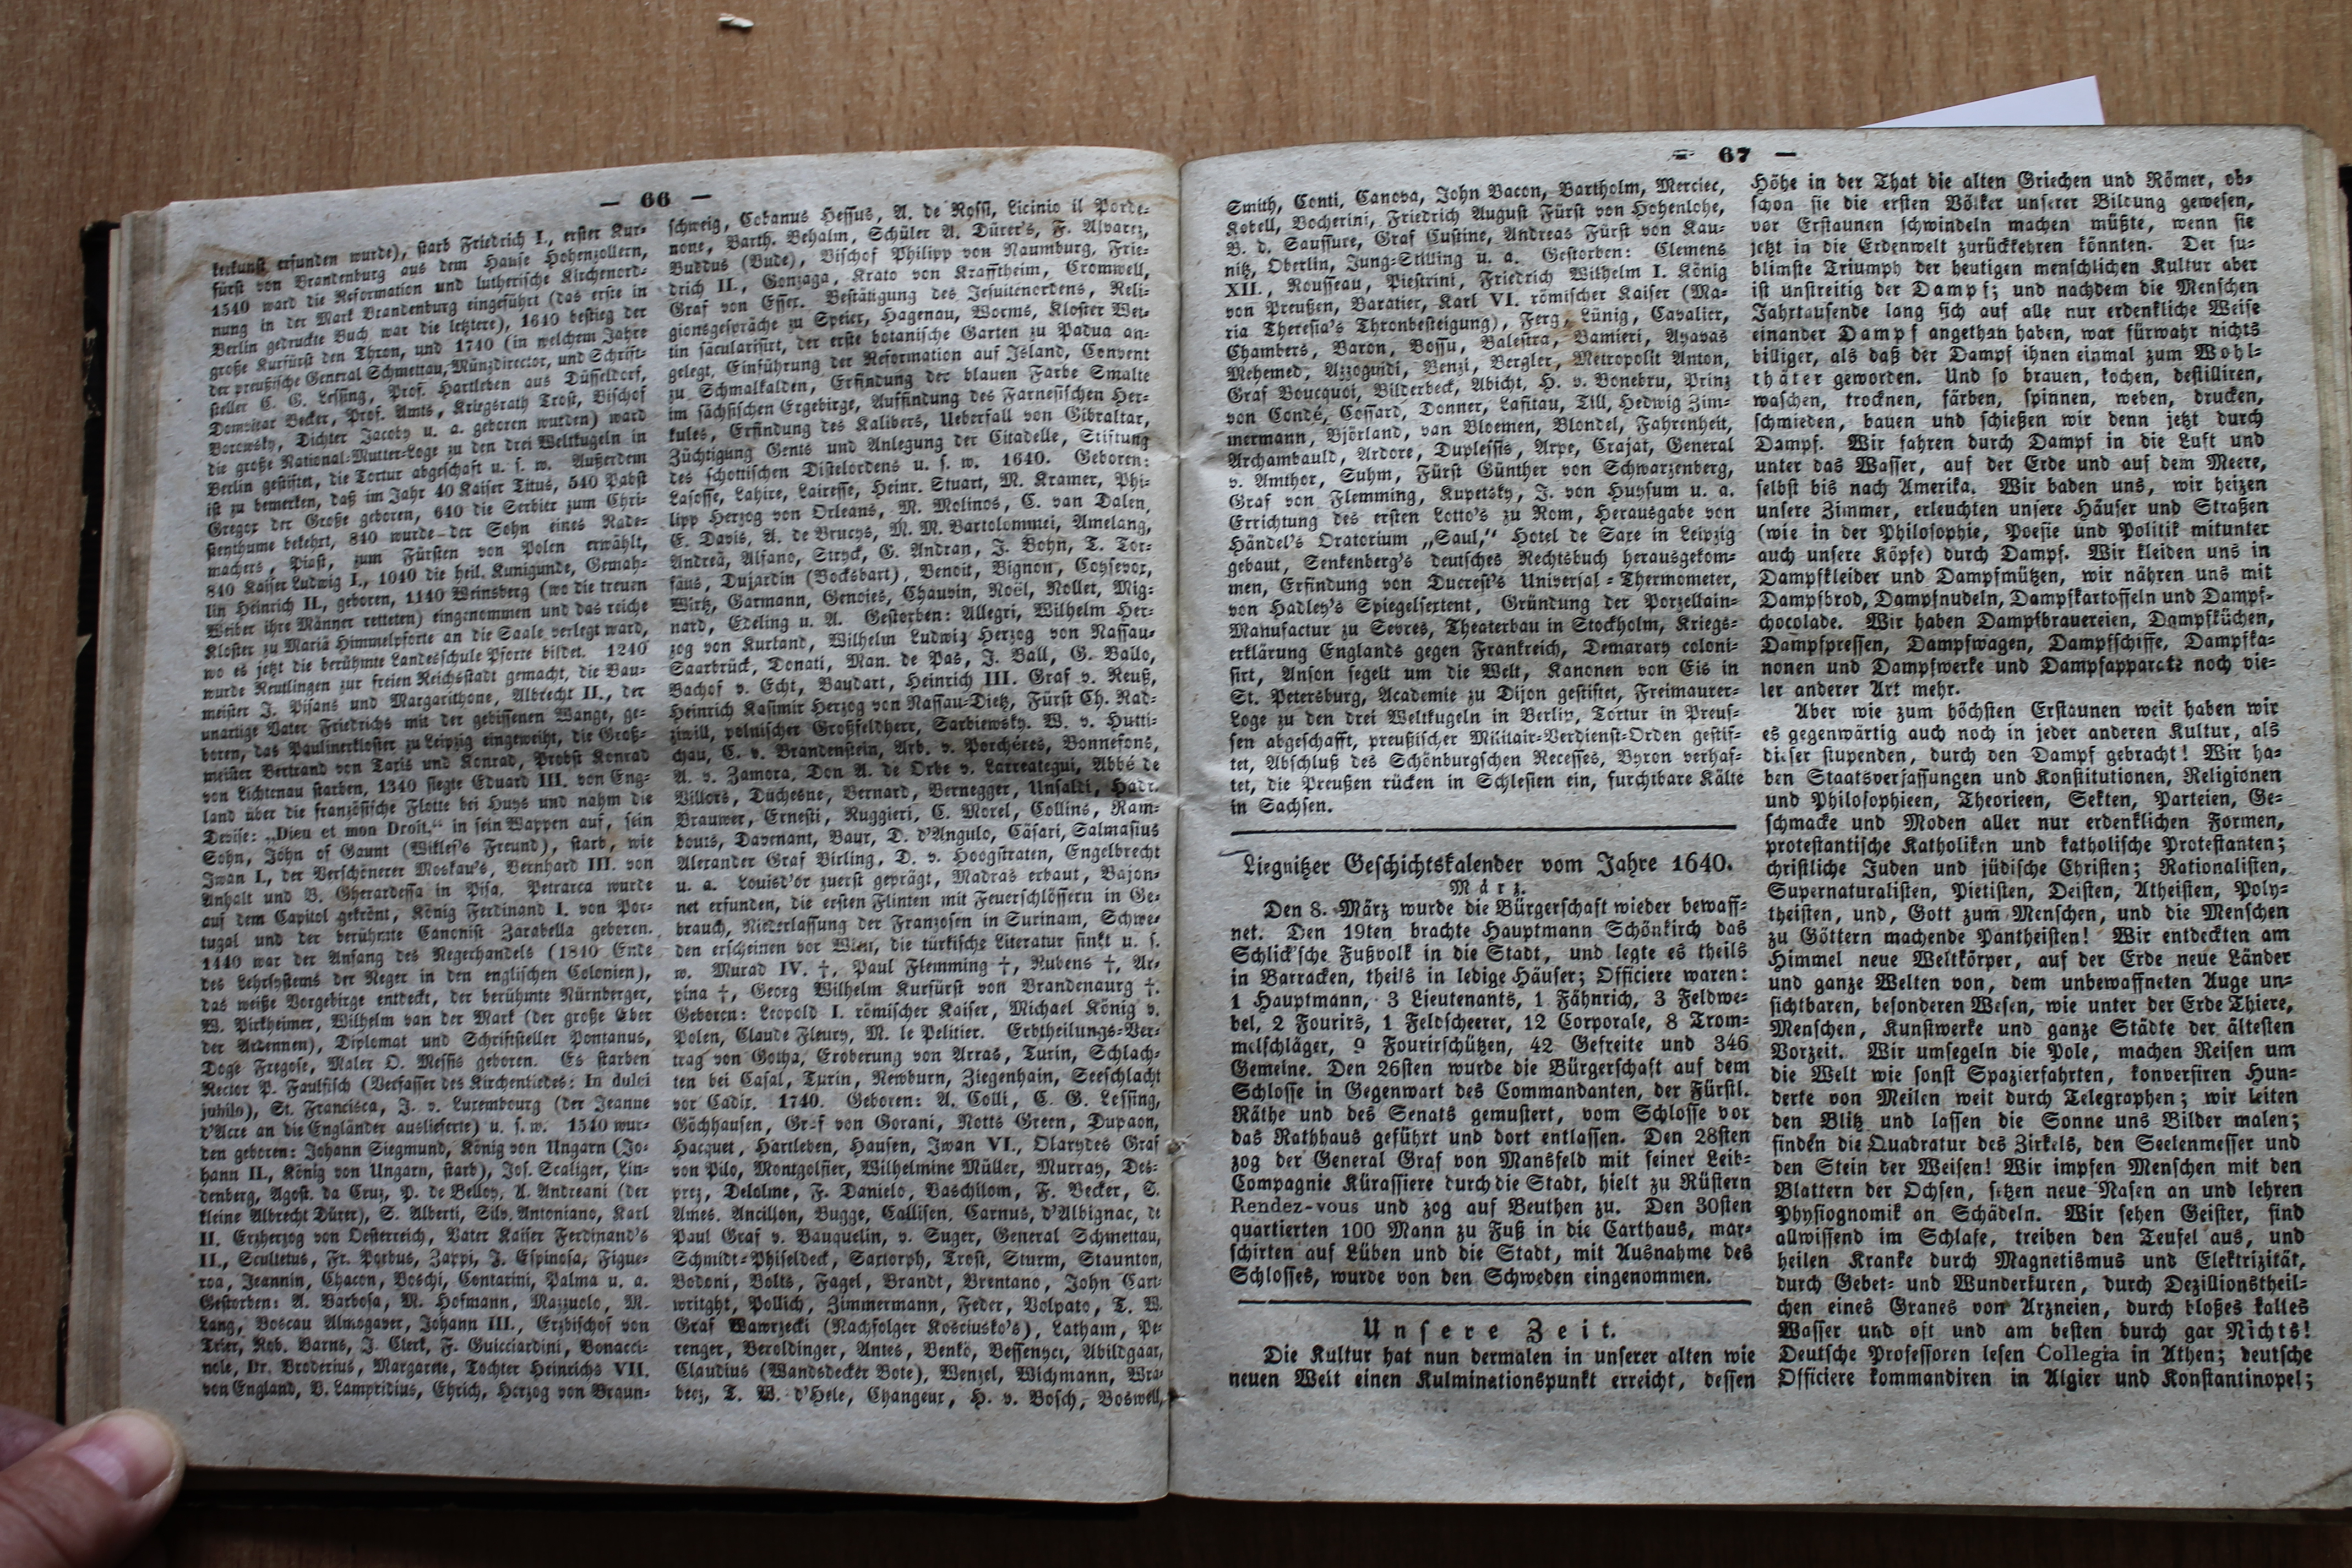 — 66 —
kerkunst erfunden wurde), starb Friedrich I., erster Kur-
fürst von Brandenburg aus dem Hause Hohenzollern,
1540 ward die Reformation und lutherische Kirchenord-
nung in der Mark Brandenburg eingeführt (das erste in
Berlin gedruckte Buch war die letztere), 1640 bestieg der
große Kurfürst den Thron, und 1740 (in welchem Jahre
der preußische General Schmettau, Münzdirector, und Schrift-
steller C. G. Lessing, Prof. Hartleben aus Düsseldorf,
Domvikar Becker, Prof. Amts, Kriegsrath Trost, Bischof
Borowsky, Dichter Jacoby u. a. geboren wurden) ward
die große National-Mutter-Loge zu den drei Weltkugeln in
Berlin gestiftet, die Tortur abgeschaft u. s. w. Außerdem
ist zu bemerken, daß im Jahr 40 Kaiser Titus, 540 Pabst
Gregor der Große geboren, 640 die Serbier zum Chri-
stenthume bekehrt, 840 wurde der Sohn eines Rade-
machers, Piast, zum Fürsten von Polen erwählt,
840 Kaiser Ludwig I., 1040 die heil. Kunigunde, Gemah-
lin Heinrich II., geboren, 1140 Weinsberg (wo die treuen
Weiber ihre Männer retteten) eingenommen und das reiche
Kloster zu Mariä Himmelpforte an die Saale verlegt ward,
wo es jetzt die berühmte Landesschule Pforte bildet. 1240
wurde Reutlingen zur freien Reichsstadt gemacht, die Bau-
meister J. Pisans und Margarithone, Albrecht II., der
unartige Vater Friedrichs mit der gebissenen Wange, ge-
boren, das Paulinerkloster zu Leipzig eingeweiht, die Groß-
meister Bertrand von Taxis und Konrad, Probst Konrad
von Lichtenau starben, 1340 siegte Eduard III. von Eng-
land über die französische Flotte bei Huys und nahm die
Devise: „Dieu et mon Droit,“ in sein Wappen auf, sein
Sohn, John of Gaunt (Wiklef's Freund), starb, wie
Iwan I., der Verschönerer Moskau's, Bernhard III. von
Anhalt und B. Gherardessa in Pisa. Petrarca wurde
auf dem Capitol gekrönt, König Ferdinand I. von Por-
tugal und der berühmte Canonist Zarabella geboren.
1440 war der Anfang des Negerhandels (1840 Ende
des Lehrsystems der Neger in den englischen Colonien),
das weiße Vorgebirge entdeckt, der berühmte Nürnberger,
W. Pirkheimer, Wilhelm van der Mark (der große Eber
der Ardennen), Diplomat und Schriftsteller Pontanus,
Doge Fregose, Maler O. Messis geboren. Es starben
Rector P. Faulfisch (Verfasser des Kirchenliedes: In dulci
jubilo), St. Francisca, J. v. Luxembourg (der Jeanne
d'Acre an die Engländer auslieferte) u. s. w. 1540 wur-
den geboren: Johann Siegmund, König von Ungarn (Jo-
hann II., König von Ungarn, starb), Jos. Scaliger, Lin-
denberg, Agost. da Cruz, P. de Belloy, A. Andreani (der
kleine Albrecht Dürer), S. Alberti, Silv. Antoniano, Karl
II. Erzherzog von Oesterreich, Vater Kaiser Ferdinand's
II., Scultetus, Fr. Porbus, Zappi, J. Espinosa, Figue-
roa, Jeannin, Chacon, Boschi, Contarini, Palma u. a.
Gestorben: A. Barbosa, M. Hofmann, Mazzuolo, M.
Lang, Boscau Almogaver, Johann III., Erzbischof von
Trier, Rob. Barns, J. Clerk, F. Guicciardini, Bonacci-
nole, Dr. Broderius, Margarethe, Tochter Heinrichs VII.
von England, B. Lampridius, Ehrich, Herzog von Braun-
schweig, Cobanus Hessus, A. de Rossi, Licinio il Porde-
none, Barth. Behalm, Schüler A. Dürer's, F. Alvarez,
Buddus (Bude), Bischof Philipp von Naumburg, Frie-
drich II., Gonzaga, Krato von Krafftheim, Cromwell,
Graf von Esser. Bestätigung des Jesuitenordens, Reli-
gionsgespräche zu Speier, Hagenau, Worms, Kloster Wei-
tin säcularisirt, der erste botanische Garten zu Padua an-
gelegt, Einführung der Reformation auf Island, Convent
zu Schmalkalden, Erfindung der blauen Farbe Smalte
im sächsischen Ergebirge, Auffindung des Farnesischen Her-
kules, Erfindung des Kalibers, Ueberfall von Gibraltar,
Züchtigung Gents und Anlegung der Citadelle, Stiftung
des schottischen Distelordens u. s. w. 1640. Geboren:
Lafosse, Lahire, Lairesse, Heinr. Stuart, M. Kramer, Phi-
lipp Herzog von Orleans, M. Molinos, C. van Dalen,
E. Davis, A. de Brueys, M. M. Bartolommei, Amelang,
Andreä, Alfano, Stryck, G. Andran, J. Bohn, T. Tor-
fäus, Dujardin (Bocksbart), Benoit, Bignon, Coysevor,
Wirtz, Garmann, Genoies, Chauvin, Noël, Nollet, Mig-
nard, Edeling u. A. Gestorben: Allegri, Wilhelm Her-
zog von Kurland, Wilhelm Ludwig Herzog von Nassau-
Saarbrück, Donati, Man. de Pas, J. Ball, G. Ballo,
Bachof v. Echt, Baudart, Heinrich III. Graf v. Reuß,
Heinrich Kasimir Herzog von Nassau-Dietz, Fürst Ch. Rad-
ziwill, polnischer Großfeldherr, Sarbiewsky. W. v. Hutti-
chau, C. v. Brandenstein, Arb. v. Porchéres, Bonnefons,
A. v. Zamora, Don A. de Orbe v. Larreategui, Abbé de
Villors, Düchesne, Bernard, Bernegger, Unsaldi, Hadr.
Brauwer, Ernesti, Ruggieri, C. Morel, Collins, Ram-
bouts, Davenant, Baur, D. d'Angulo, Cäsari, Salmasius
Alexander Graf Birling, D. v. Hoogstraten, Engelbrecht
u. a. Louisd'or zuerst geprägt, Madras erbaut, Bajon-
net erfunden, die ersten Flinten mit Feuerschlössern in Ge-
brauch, Niederlassung der Franzosen in Surinam, Schwe-
den erscheinen vor Wien, die türkische Literatur sinkt u. s.
w. Murad IV. †, Paul Flemming †, Rubens †, Ar-
pina †, Georg Wilhelm Kurfürst von Brandenaurg †.
Geboren: Leopold I. römischer Kaiser, Michael König v.
Polen, Claude Fleury, M. le Pelitier. Erbtheilungs-Ver-
trag von Gotha, Eroberung von Arras, Turin, Schlach-
ten bei Casal, Turin, Newburn, Ziegenhain, Seeschlacht
vor Cadix. 1740. Geboren: A. Colli, C. G. Lessing,
Göchhausen, Graf von Gorani, Notts Green, Dupaon,
Hacquet, Hartleben, Hausen, Iwan VI., Olarydes Graf
von Pilo, Montgolfier, Wilhelmine Müller, Murray, Des-
prez, Delolme, F. Danielo, Vaschilom, F. Becker, C.
Ames. Ancillon, Bugge, Callisen, Carnus, d'Albignac, de
Paul Graf v. Bauquelin, v. Suger, General Schmettau,
Schmidt-Phiseldeck, Sartorph, Trost, Sturm, Staunton,
Bodoni, Bolts, Fagel, Brandt, Brentano, John Cart-
writght, Pollich, Zimmermann, Feder, Volpato, T. W.
Graf Wawrzecki (Nachfolger Kosciusko's), Latham, Pe-
renger, Beroldinger, Antes, Benkö, Bessenyci, Abildgaar,
Claudius (Wandsdecker Bote), Wenzel, Wichmann, Wra-
becz, T. W. d'Hele, Changeur, H. v. Bosch, Boswell,
— 67 —
Smith, Conti, Canova, John Bacon, Bartholm, Merciec,
Kobell, Bocherini, Friedrich August Fürst von Hohenlohe,
B. d. Saussure, Graf Custine, Andreas Fürst von Kau-
nitz, Oberlin, Jung-Stilling u. a. Gestorben: Clemens
XII., Rousseau, Piestrini, Friedrich Wilhelm I. König
von Preußen, Baratier, Karl VI. römischer Kaiser (Ma-
ria Theresia's Thronbesteigung), Ferg, Lünig, Cavalier,
Chambers, Baron, Bossu, Balestra, Bamieri, Ayavas
Mehemed, Azzoguidi, Benzi, Bergler, Metropolit Anton,
Graf Boucquoi, Bilderbeck, Abicht, H. v. Bonebru, Prinz
von Condé, Cossard, Donner, Lafitau, Till, Hedwig Zim-
mermann, Björland, van Bloemen, Blondel, Fahrenheit,
Archambauld, Ardore, Duplessis, Arpe, Crajat, General
v. Amthor, Suhm, Fürst Günther von Schwarzenberg,
Graf von Flemming, Kupetsky, J. von Huysum u. a.
Errichtung des ersten Lotto's zu Rom, Herausgabe von
Händel's Oratorium „Saul,“ Hotel de Saxe in Leipzig
gebaut, Senkenberg's deutsches Rechtsbuch herausgekom-
men, Erfindung von Ducrest's Universal-Thermometer,
von Hadley's Spiegelsextent, Gründung der Porzellain-
Manufactur zu Sevres, Theaterbau in Stockholm, Kriegs-
erklärung Englands gegen Frankreich, Demarary coloni-
sirt, Anson segelt um die Welt, Kanonen von Eis in
St. Petersburg, Academie zu Dijon gestiftet, Freimaurer-
Loge zu den drei Weltkugeln in Berlin, Tortur in Preus-
sen abgeschafft, preußischer Militair-Verdienst-Orden gestif-
tet, Abschluß des Schönburgschen Recesses, Byron verhaf-
tet, die Preußen rücken in Schlesien ein, furchtbare Kälte
in Sachsen.
Liegnitzer Geschichtskalender vom Jahre 1640.
März.
Den 8. März wurde die Bürgerschaft wieder bewaff-
net. Den 19ten brachte Hauptmann Schönkirch das
Schlick'sche Fußvolk in die Stadt, und legte es theils
in Barracken, theils in ledige Häuser; Officiere waren:
1 Hauptmann, 3 Lieutenants, 1 Fähnrich, 3 Feldwe-
bel, 2 Fourirs, 1 Feldscheerer, 12 Corporale, 8 Trom-
melschläger, 9 Fourirschützen, 42 Gefreite und 346
Gemeine. Den 26sten wurde die Bürgerschaft auf dem
Schlosse in Gegenwart des Commandanten, der Fürstl.
Räthe und des Senats gemustert, vom Schlosse vor
das Rathhaus geführt und dort entlassen. Den 28sten
zog der General Graf von Mansfeld mit seiner Leib-
Compagnie Kürassiere durch die Stadt, hielt zu Rüstern
Rendez-vous und zog auf Beuthen zu. Den 30sten
quartierten 100 Mann zu Fuß in die Carthaus, mar-
schirten auf Lüben und die Stadt, mit Ausnahme des
Schlosses, wurde von den Schweden eingenommen.
Unsere Zeit.
Die Kultur hat nun dermalen in unserer alten wie
neuen Welt einen Kulminationspunkt erreicht, dessen
Höhe in der That die alten Griechen und Römer, ob-
schon sie die ersten Völker unserer Bildung gewesen,
vor Erstaunen schwindeln machen müßte, wenn sie
jetzt in die Erdenwelt zurückkehren könnten. Der su-
blimste Triumph der heutigen menschlichen Kultur aber
ist unstreitig der Dampf; und nachdem die Menschen
Jahrtausende lang sich auf alle nur erdenkliche Weise
einander Dampf angethan haben, war fürwahr nichts
billiger, als daß der Dampf ihnen einmal zum Wohl-
thäter geworden. Und so brauen, kochen, destilliren,
waschen, trocknen, färben, spinnen, weben, drucken,
schmieden, bauen und schießen wir denn jetzt durch
Dampf. Wir fahren durch Dampf in die Luft und
unter das Wasser, auf der Erde und auf dem Meere,
selbst bis nach Amerika. Wir baden uns, wir heizen
unsere Zimmer, erleuchten unsere Häuser und Straßen
(wie in der Philosophie, Poesie und Politik mitunter
auch unsere Köpfe) durch Dampf. Wir kleiden uns in
Dampfkleider und Dampfmützen, wir nähren uns mit
Dampfbrod, Dampfnudeln, Dampfkartoffeln und Dampf-
chocolade. Wir haben Dampfbrauereien, Dampfküchen,
Dampfpressen, Dampfwagen, Dampfschiffe, Dampfka-
nonen und Dampfwerke und Dampfapparate noch vie-
ler anderer Art mehr.
Aber wie zum höchsten Erstaunen weit haben wir
es gegenwärtig auch noch in jeder anderen Kultur, als
dieser stupenden, durch den Dampf gebracht! Wir ha-
ben Staatsverfassungen und Konstitutionen, Religionen
und Philosophieen, Theorieen, Sekten, Parteien, Ge-
schmacke und Moden aller nur erdenklichen Formen,
protestantische Katholiken und katholische Protestanten;
christliche Juden und jüdische Christen; Rationalisten,
Supernaturalisten, Pietisten, Deisten, Atheisten, Poly-
theisten, und, Gott zum Menschen, und die Menschen
zu Göttern machende Pantheisten! Wir entdeckten am
Himmel neue Weltkörper, auf der Erde neue Länder
und ganze Welten von, dem unbewaffneten Auge un-
sichtbaren, besonderen Wesen, wie unter der Erde Thiere,
Menschen, Kunstwerke und ganze Städte der ältesten
Vorzeit. Wir umsegeln die Pole, machen Reisen um
die Welt wie sonst Spazierfahrten, konversiren Hun-
derte von Meilen weit durch Telegraphen; wir leiten
den Blitz und lassen die Sonne uns Bilder malen;
finden die Quadratur des Zirkels, den Seelenmesser und
den Stein der Weisen! Wir impfen Menschen mit den
Blattern der Ochsen, setzen neue Nasen an und lehren
Physiognomik an Schädeln. Wir sehen Geister, sind
allwissend im Schlafe, treiben den Teufel aus, und
heilen Kranke durch Magnetismus und Elektrizität,
durch Gebet- und Wunderkuren, durch Dezillionstheil-
chen eines Granes von Arzneien, durch bloßes kaltes
Wasser und oft und am besten durch gar Nichts!
Deutsche Professoren lesen Collegia in Athen; deutsche
Officiere kommandiren in Algier und Konstantinopel;